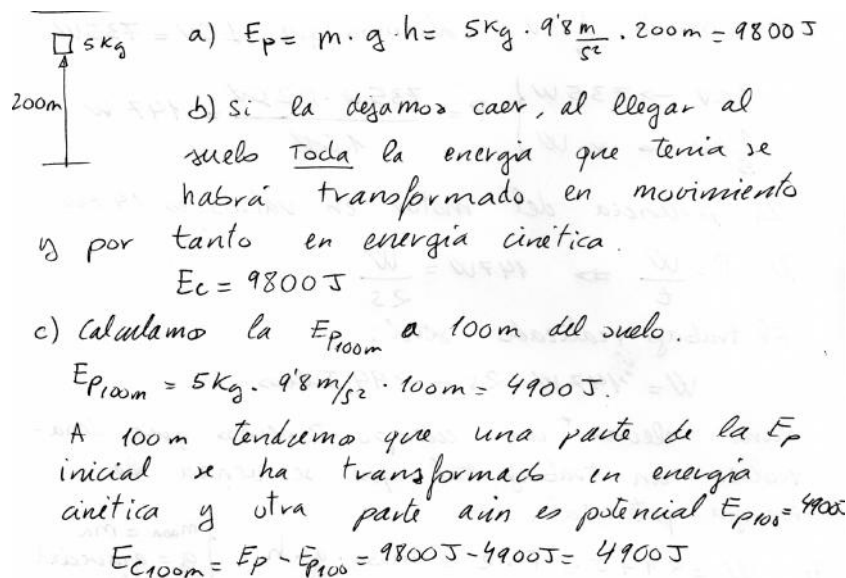 5 Kg a) Ep = m · g · h = 5Kg · 9'8 m/s² · 200m = 9800 J
200m b) Si la dejamos caer, al llegar al
suelo Toda la energía que tenía se
habrá transformado en movimiento
y por tanto en energía cinética.
Ec = 9800 J
c) Calculamos la Ep100m a 100m del suelo.
Ep100m = 5Kg · 9'8 m/s² · 100m = 4900 J.
A 100m tendremos que una parte de la Ep
inicial se ha transformado en energía
cinética y otra parte aún es potencial Ep100 = 4900J
Ec100m = Ep - Ep100 = 9800J - 4900J = 4900 J